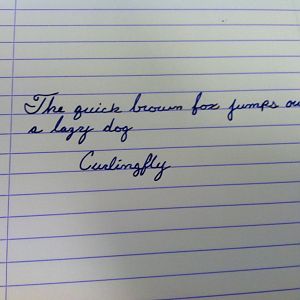 The quick brown fox jumps
a lazy dog
Curlingfly